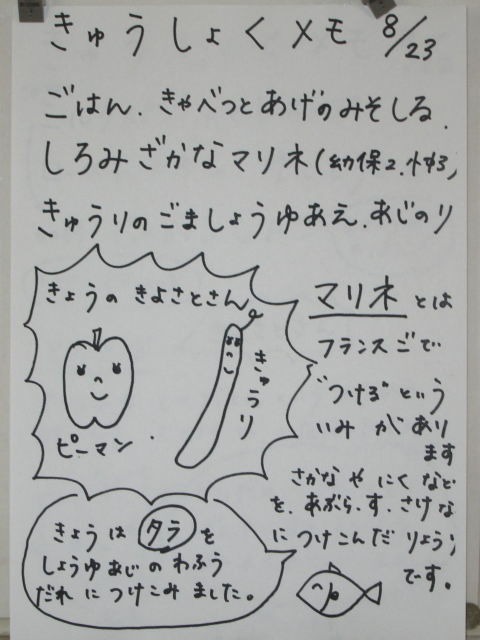 きゅうしょくメモ 8/23
ごはん.きゃべつとあげのみそしる.
しろみざかなマリネ(幼保2.小中3)
きゅうりのごましょうゆあえ.あじのり
きょうの きよさとさん
ピーマン
きゅうり
マリネとは
フランスごで
"つける"という
いみ があり
ます
さかな や にく など
を、あぶら.す.さけ な
に つけこんだ りょうり
です。
きょうは タラ を
しょうゆあじの わふう
だれ に つけこみ ました。